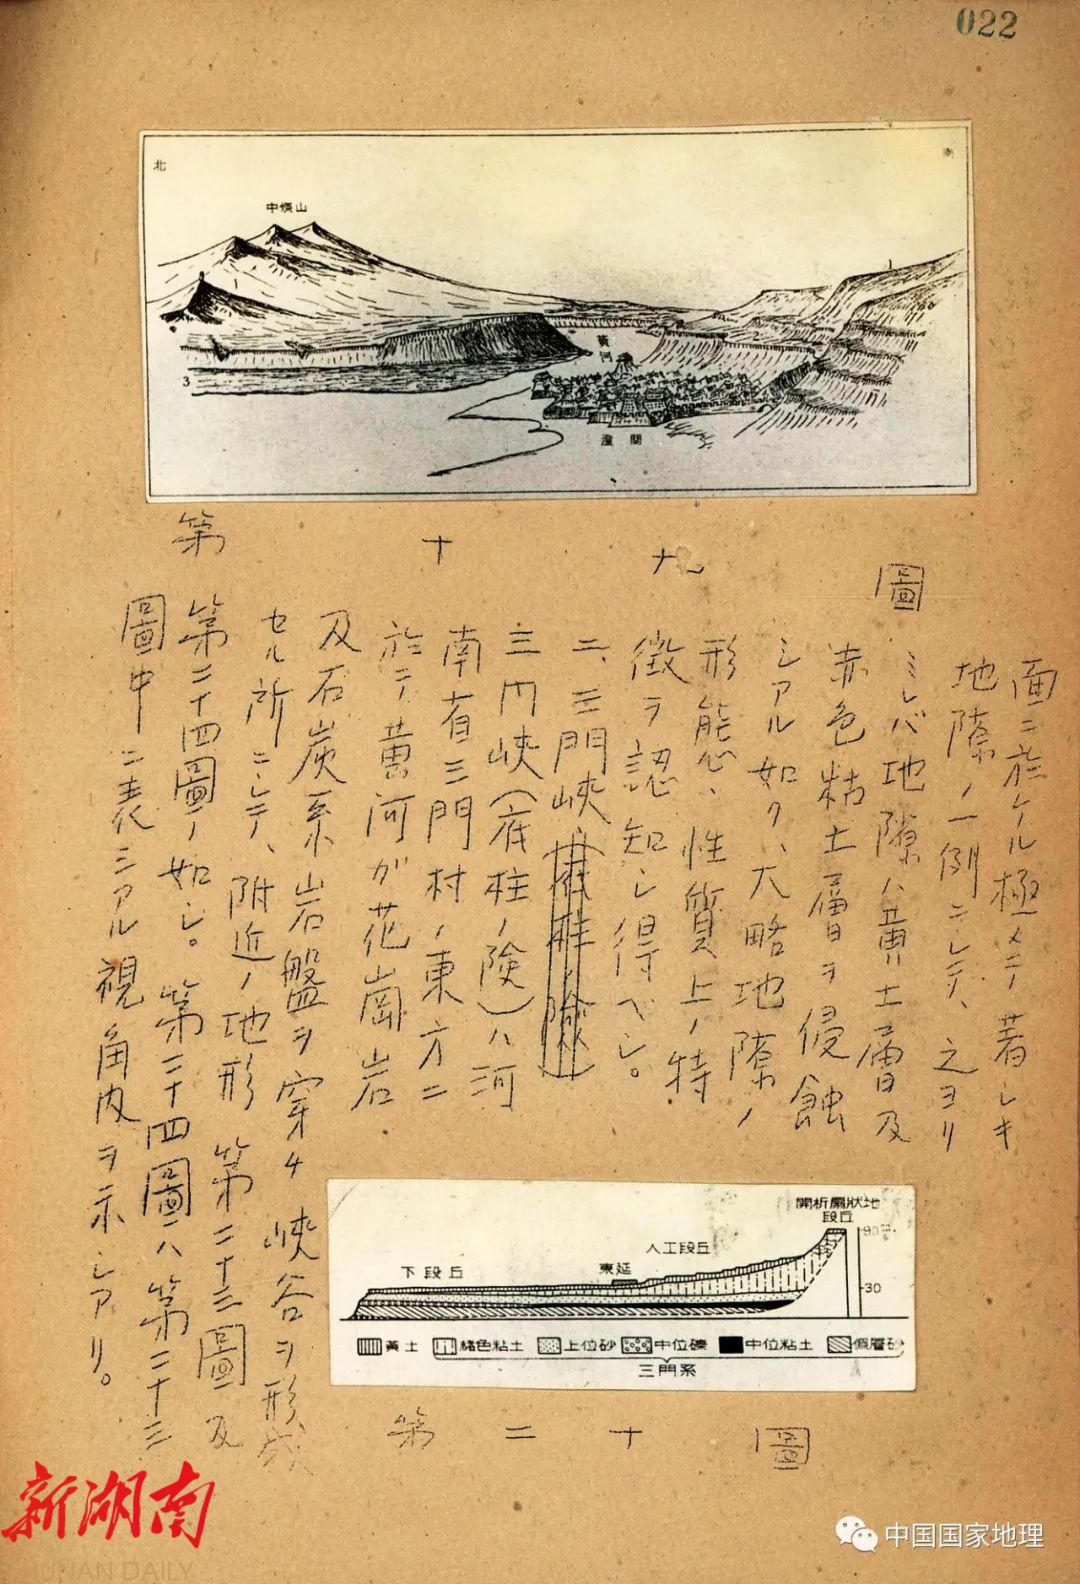 022
北
南
中條山
黄河
潼關
3
2
1
第十九圖
面ニ於ケル極メテ著シキ
地隙ノ一例ニシテ、之ヨリ
ミレバ地隙ハ黄土層及
赤色粘土層ヲ侵蝕
シアル如ク、大略地隙ノ
形態、性質上ノ特
徴ヲ認知シ得ベシ。
二、三門峡
三門峡(底柱ノ険)ハ河
南省三門村ノ東方ニ
於テ黄河ガ花崗岩
及石炭系岩盤ヲ穿チ峡谷ヲ形成
セル所ニシテ、附近ノ地形 第二十三圖及
第二十四圖ノ如シ。第二十四圖ハ第二十三
圖中ニ表シアル視角内ヲ示シアリ。
開析扇狀地
段丘
人工段丘
東延
下段丘
90
30
黃土 赭色粘土 上位砂 中位礫 中位粘土 偽層砂
三門系
第二十圖
新湖南
HUNAN DAILY
中国国家地理